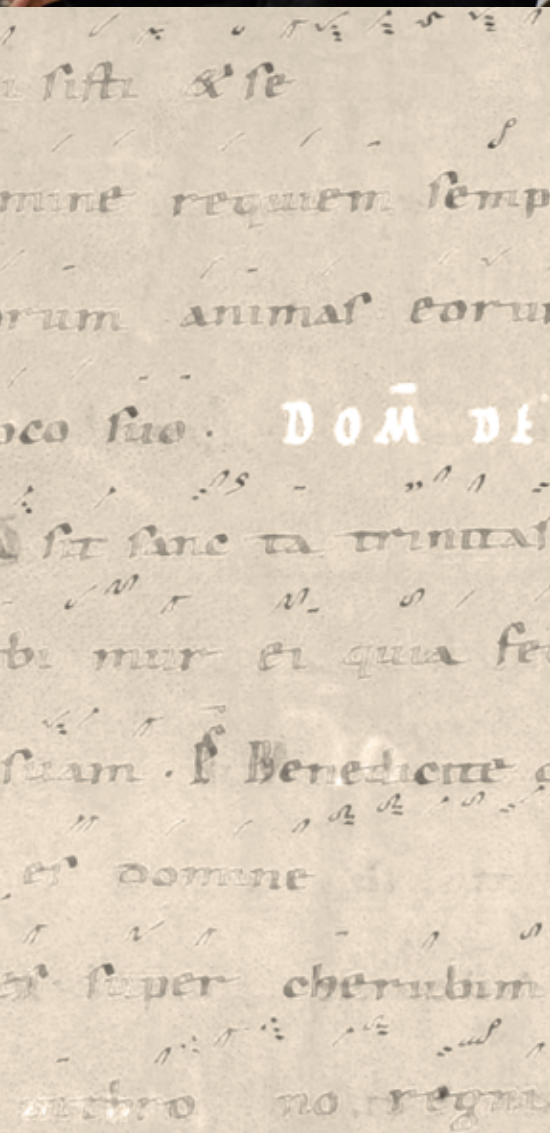 sisti & se
mine requiem semp
orum animas eorum
oco suo . DOM̄ DE
sit sanc ta trinitas
bi mur ei quia fec
suam . Ps Benedicite
es domine
es super cherubim
no regni